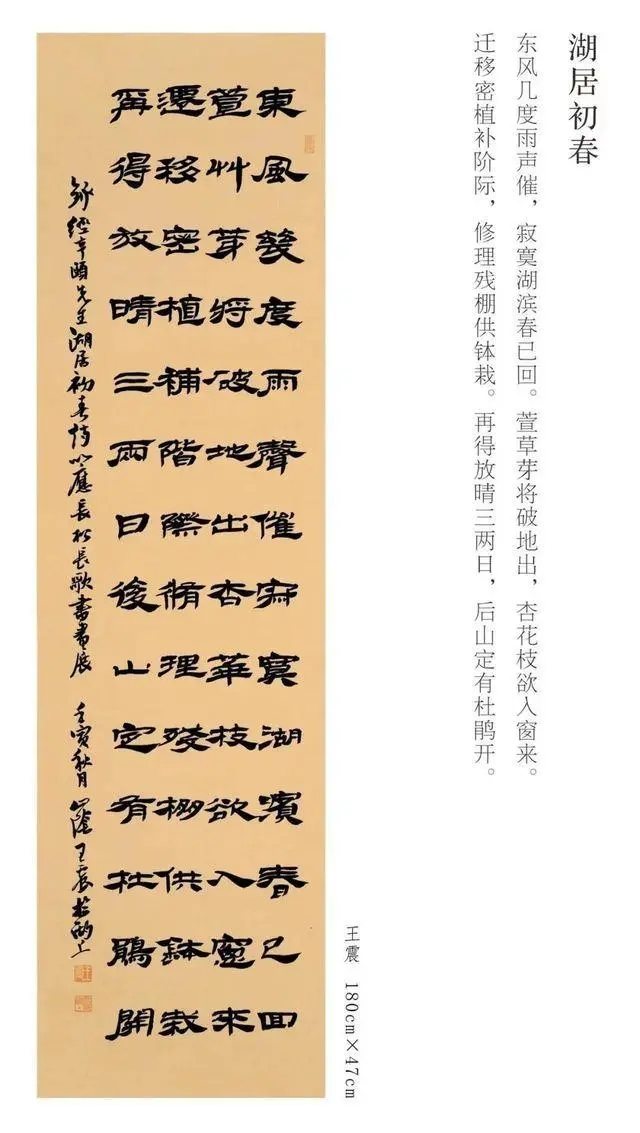 湖居初春
东风几度雨声催，寂寞湖滨春已回。萱草芽将破地出，杏花枝欲入窗来。
迁移密植补阶际，修理残棚供钵栽。再得放晴三两日，后山定有杜鹃开。
王震 180cm×47cm
東風幾度雨聲催寂寞湖濱春已回
萱艸芽將破地出杏華枝欲入窻來
遷移密植補階際脩理殘棚供鉢栽
再得放晴三兩日後山定有杜鵑開
錄經亨頤先生湖居初春詩以應長松長歌書畫展 壬寅秋月 山陰王震於上